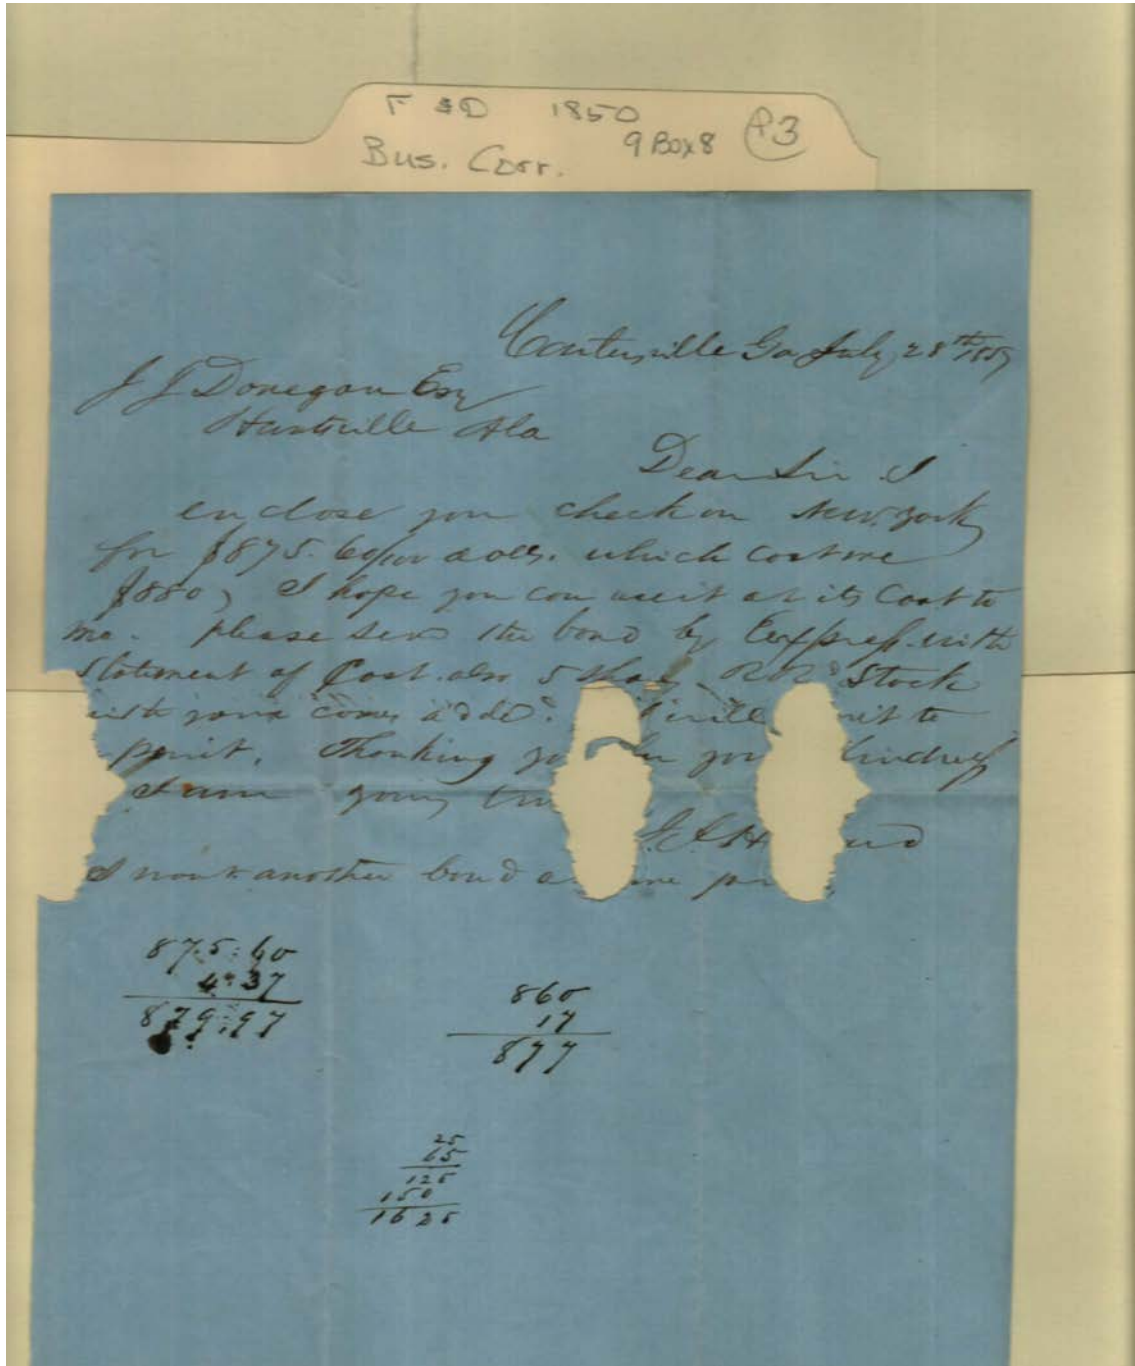 F & D 1850
9 Box 8 P3
Bus. Corr.
Cartersville Ga July 28th 1859
J J Donegan Esq
Huntsville Ala
Dear Sir I
enclose you check on New York
for $875. 60/100 dolls. which cost me
$880, I hope you can use it at its Cost to
me. please send the bond by Express with
Statement of Cost. also 5 Shas R Rd Stock
with
Thanking you kindness
I am yours tru
I want another bond a me
875:60
4:37
879:97
860
17
877
25
65
125
150
1625